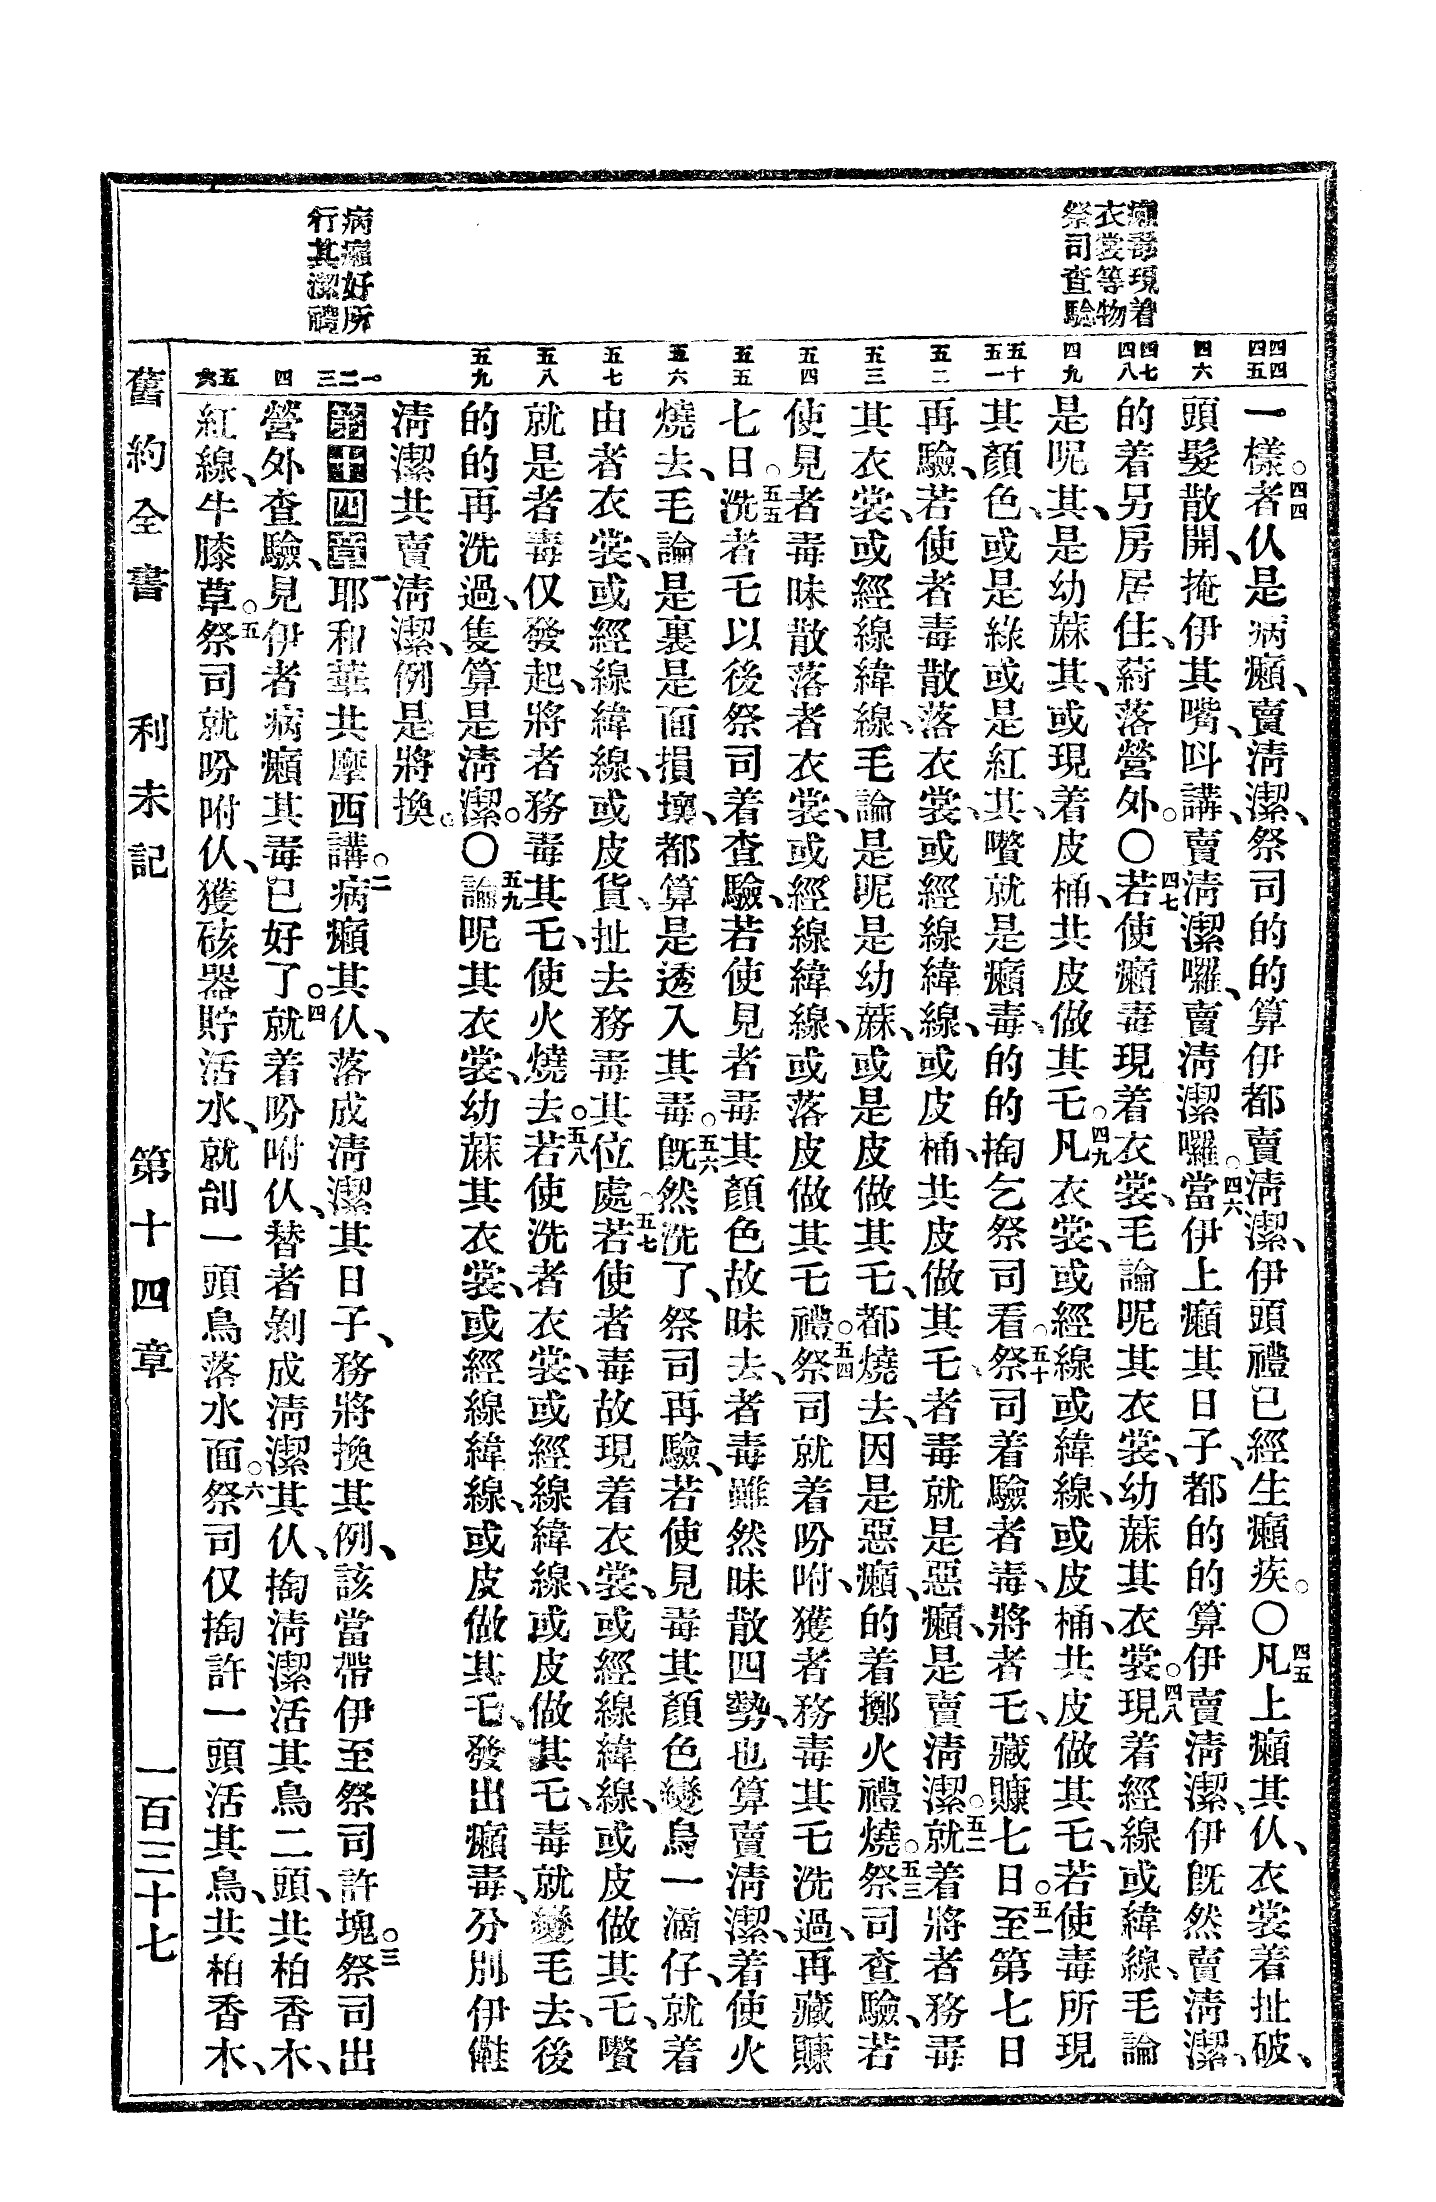 癩毒現着
衣裳等物
祭司查驗
病癩好所
行其潔禮
四四 四五 四六 四七 四八 四九 五十 五一 五二 五三 五四 五五 五六 五七 五八 五九 一 二 三 四 五 六
一樣。四四者仈是病癩、賣淸潔、祭司的的算伊都賣淸潔、伊頭禮已經生癩疾。〇四五凡上癩其仈、衣裳着扯破、
頭髮散開、掩伊其嘴、呌講、賣淸潔囉、賣淸潔囉。四六當伊上癩其日子、都的的算伊賣淸潔、伊旣然賣淸潔、
的着另房居住、𦰡落營外。〇四七若使癩毒現着衣裳、毛論呢其衣裳、幼蔴其衣裳。四八現着經線或緯線、毛論
是呢其、是幼蔴其、或現着皮桶、共皮做其乇。四九凡衣裳、或經線或緯線、或皮桶、共皮做其乇、若使毒所現
其顏色、或是綠或是紅其、嘴就是癩毒、的的掏乞祭司看。五十祭司着驗者毒、將者乇、藏賺七日。五一至第七日
再驗、若使者毒散落衣裳、或經線緯線、或皮桶、共皮做其乇、者毒就是惡癩、是賣淸潔。五二就着將者務毒
其衣裳、或經線緯線、毛論是呢是幼蔴、或是皮做其乇、都燒去、因是惡癩、的着擲火禮燒。五三祭司查驗、若
使見者毒昧散落者衣裳、或經線緯線、或落皮做其乇禮。五四祭司就着吩咐、獲者務毒其乇洗過、再藏賺
七日。五五洗者乇以後、祭司着查驗、若使見者毒其顏色故昧去、者毒雖然昧散四勢、也算賣淸潔、着使火
燒去、毛論是裏是面損壞、都算是透入其毒。五六旣然洗了、祭司再驗、若使見毒其顏色變烏一滴仔、就着
由者衣裳、或經線緯線、或皮貨扯去務毒其位處。五七若使者毒故現着衣裳、或經線緯線、或皮做其乇、嘴
就是者毒仅發起、將者務毒其乇、使火燒去。五八若使洗者衣裳、或經線緯線、或皮做其乇、毒就變毛去、後
的的再洗過、隻算是淸潔。〇五九論呢其衣裳、幼蔴其衣裳、或經線緯線、或皮做其乇、發出癩毒、分別伊
淸潔共賣淸潔、例是將換。
第十四章 一耶和華共摩西講。二病癩其仈、落成淸潔其日子、務將換其例、該當帶伊至祭司許塊。三祭司出
營外查驗、見伊者病癩其毒已好了。四就着吩咐仈、替者剝成淸潔其仈、掏淸潔活其鳥二頭、共柏香木、
紅線、牛膝草。五祭司就吩咐仈、獲硋器貯活水、就刣一頭鳥落水面。六祭司仅掏許一頭活其鳥、共柏香木、
舊約全書 利未記 第十四章 一百三十七